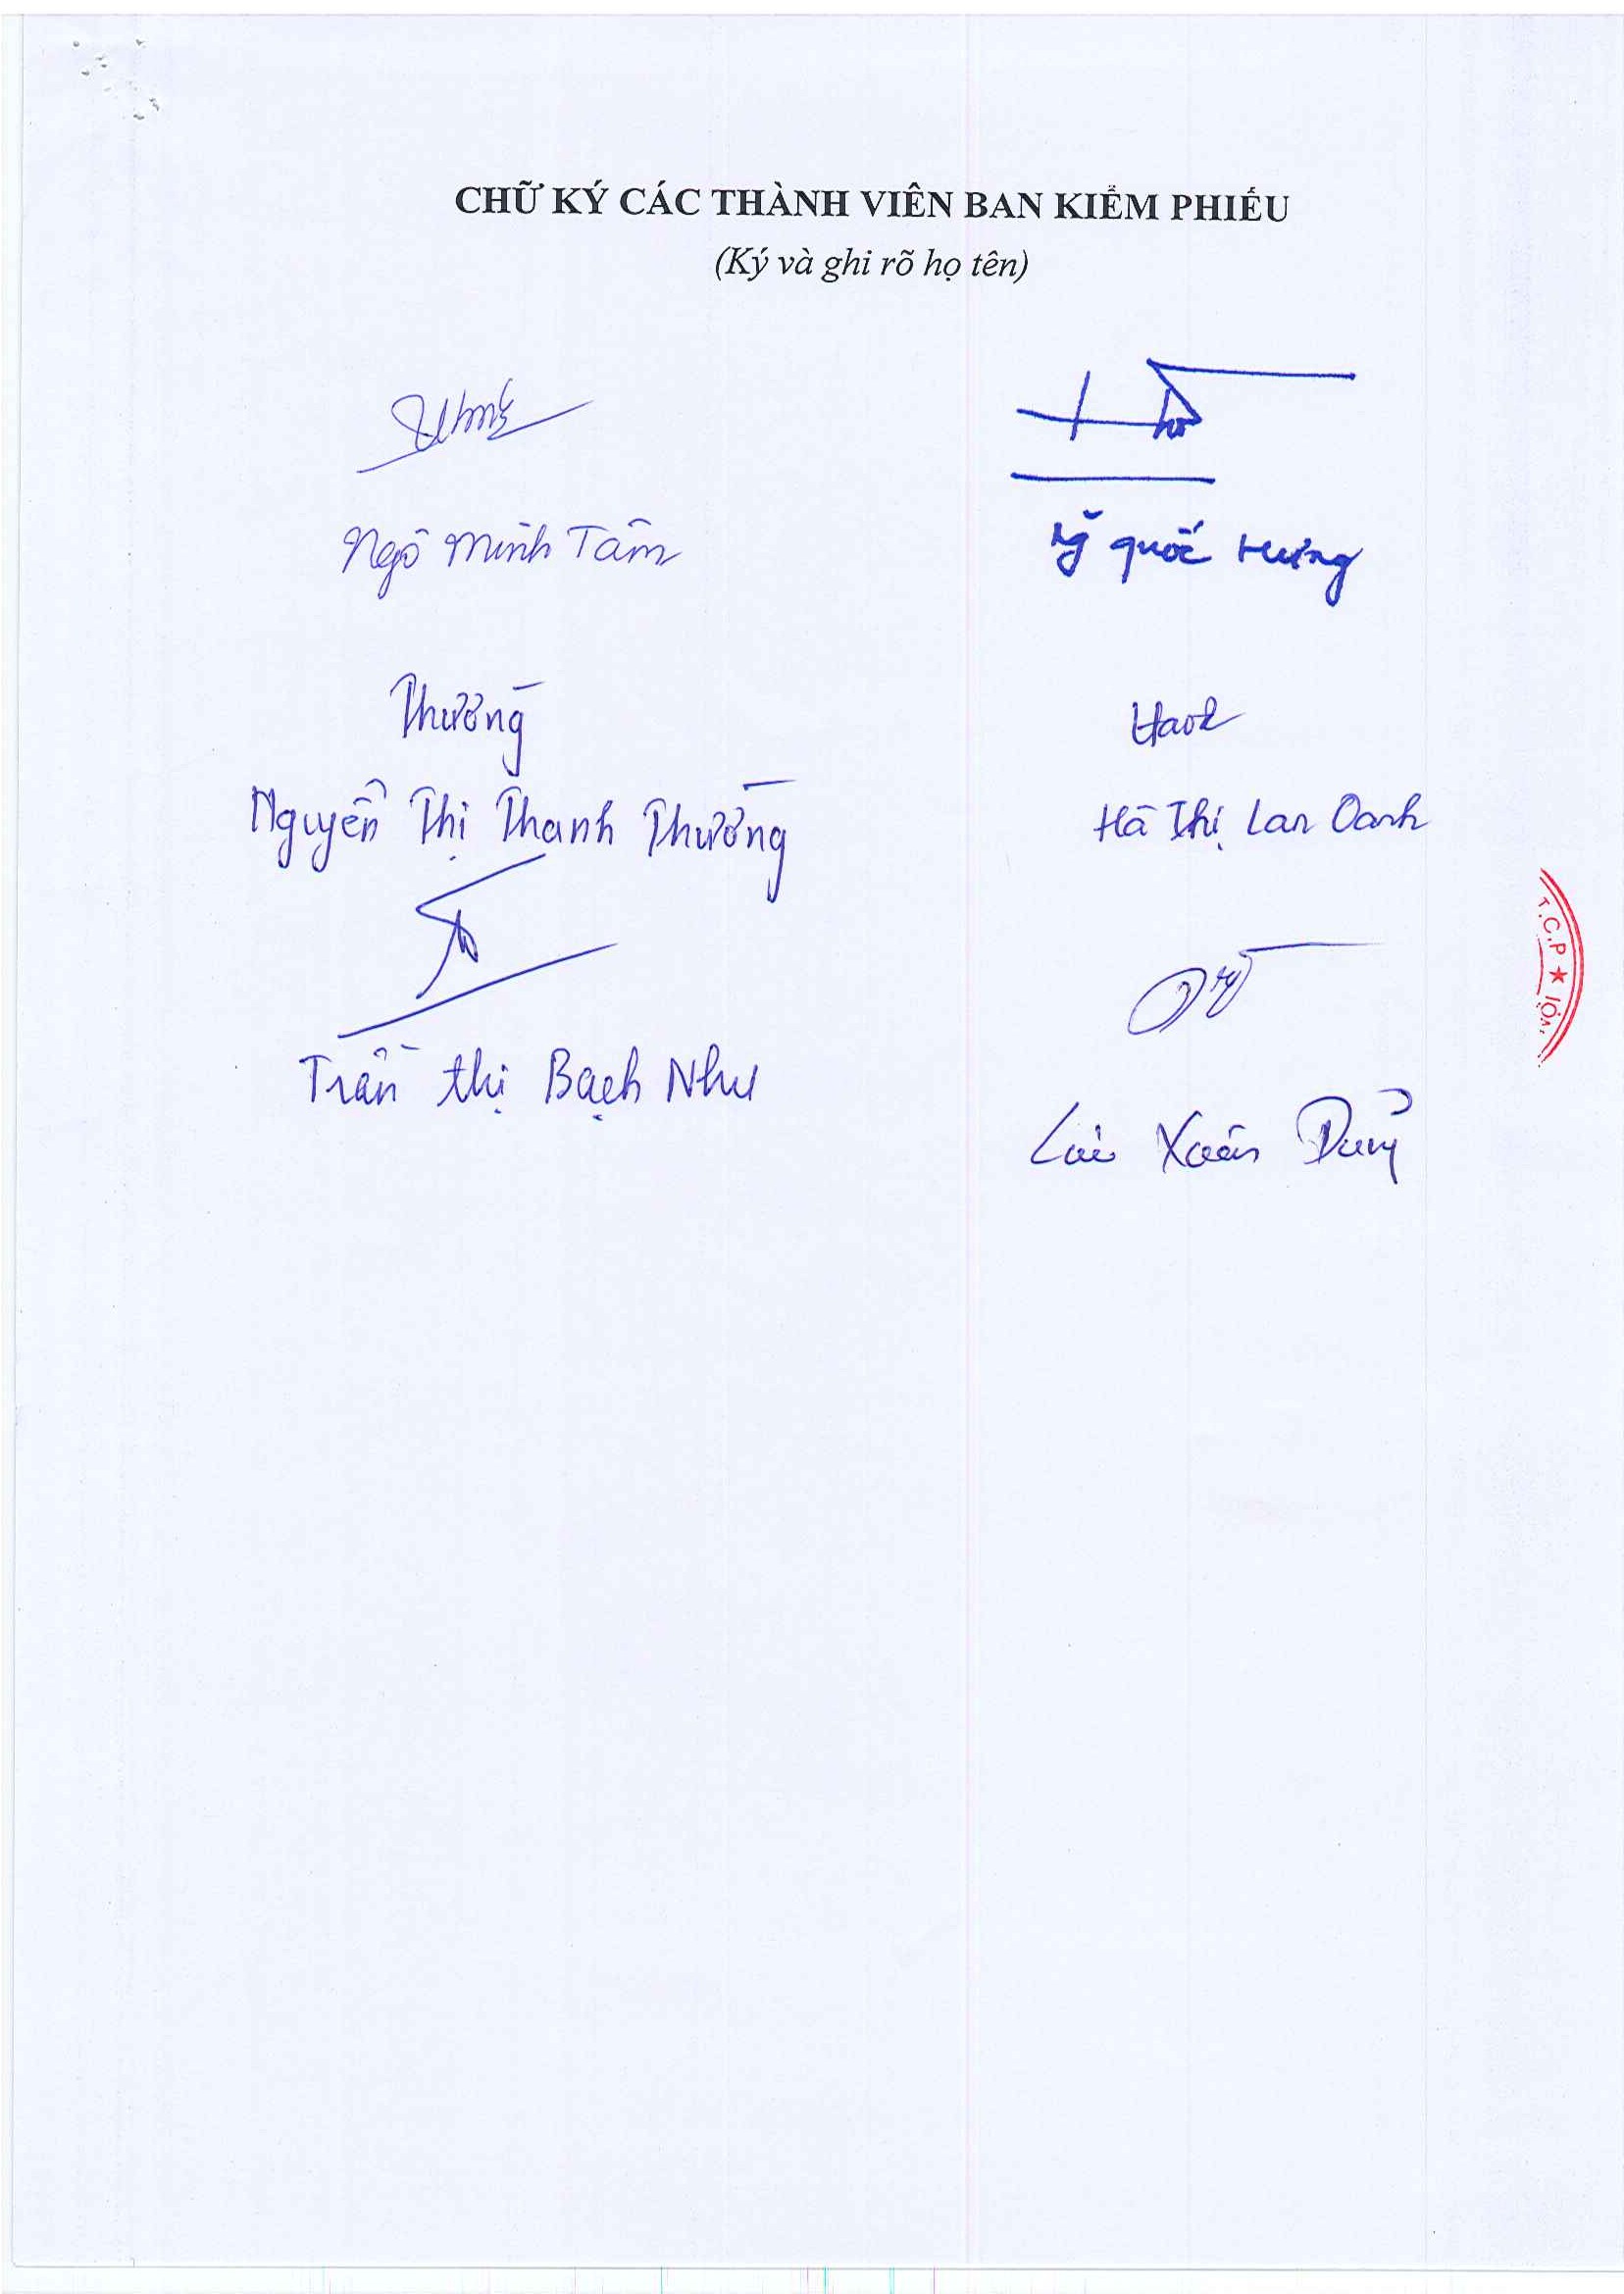 CHỮ KÝ CÁC THÀNH VIÊN BAN KIỂM PHIẾU
(Ký và ghi rõ họ tên)
Ngô Minh Tâm
quốc Hưng
Thương
Nguyễn Thị Thanh Thương
Hà Thị Lan Oanh
Trần Thị Bạch Như
Xuân Duy
T.C.P ★